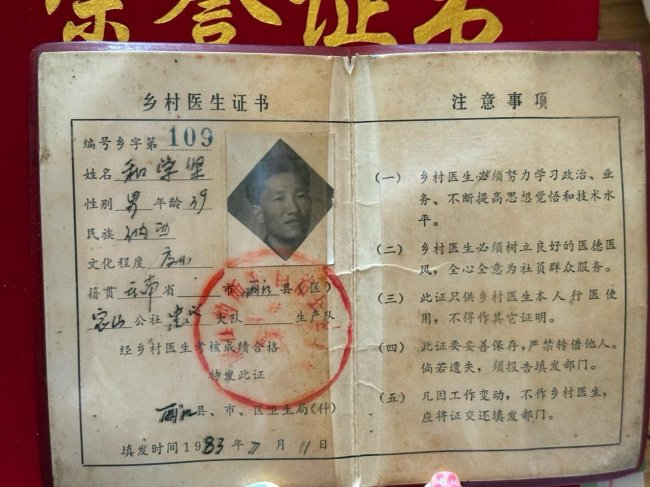 荣誉证书
乡村医生证书
编号乡字第 109
姓名 和学坚
性别 男 年龄 39
民族 纳西
文化程度
籍贯 云南省 市 丽江县(区)
公社 大队 生产队
经乡村医生考核成绩合格
特发此证
丽江县、市、区卫生局(科)
填发时间 1983年 月 11日
注意事项
(一) 乡村医生必须努力学习政治、业
务、不断提高思想觉悟和技术水
平。
(二) 乡村医生必须树立良好的医德医
风,全心全意为社员群众服务。
(三) 此证只供乡村医生本人行医使
用,不得作其它证明。
(四) 此证要妥善保存,严禁转借他人。
倘若遗失,须报告填发部门。
(五) 凡因工作变动,不作乡村医生,
应将证交还填发部门。